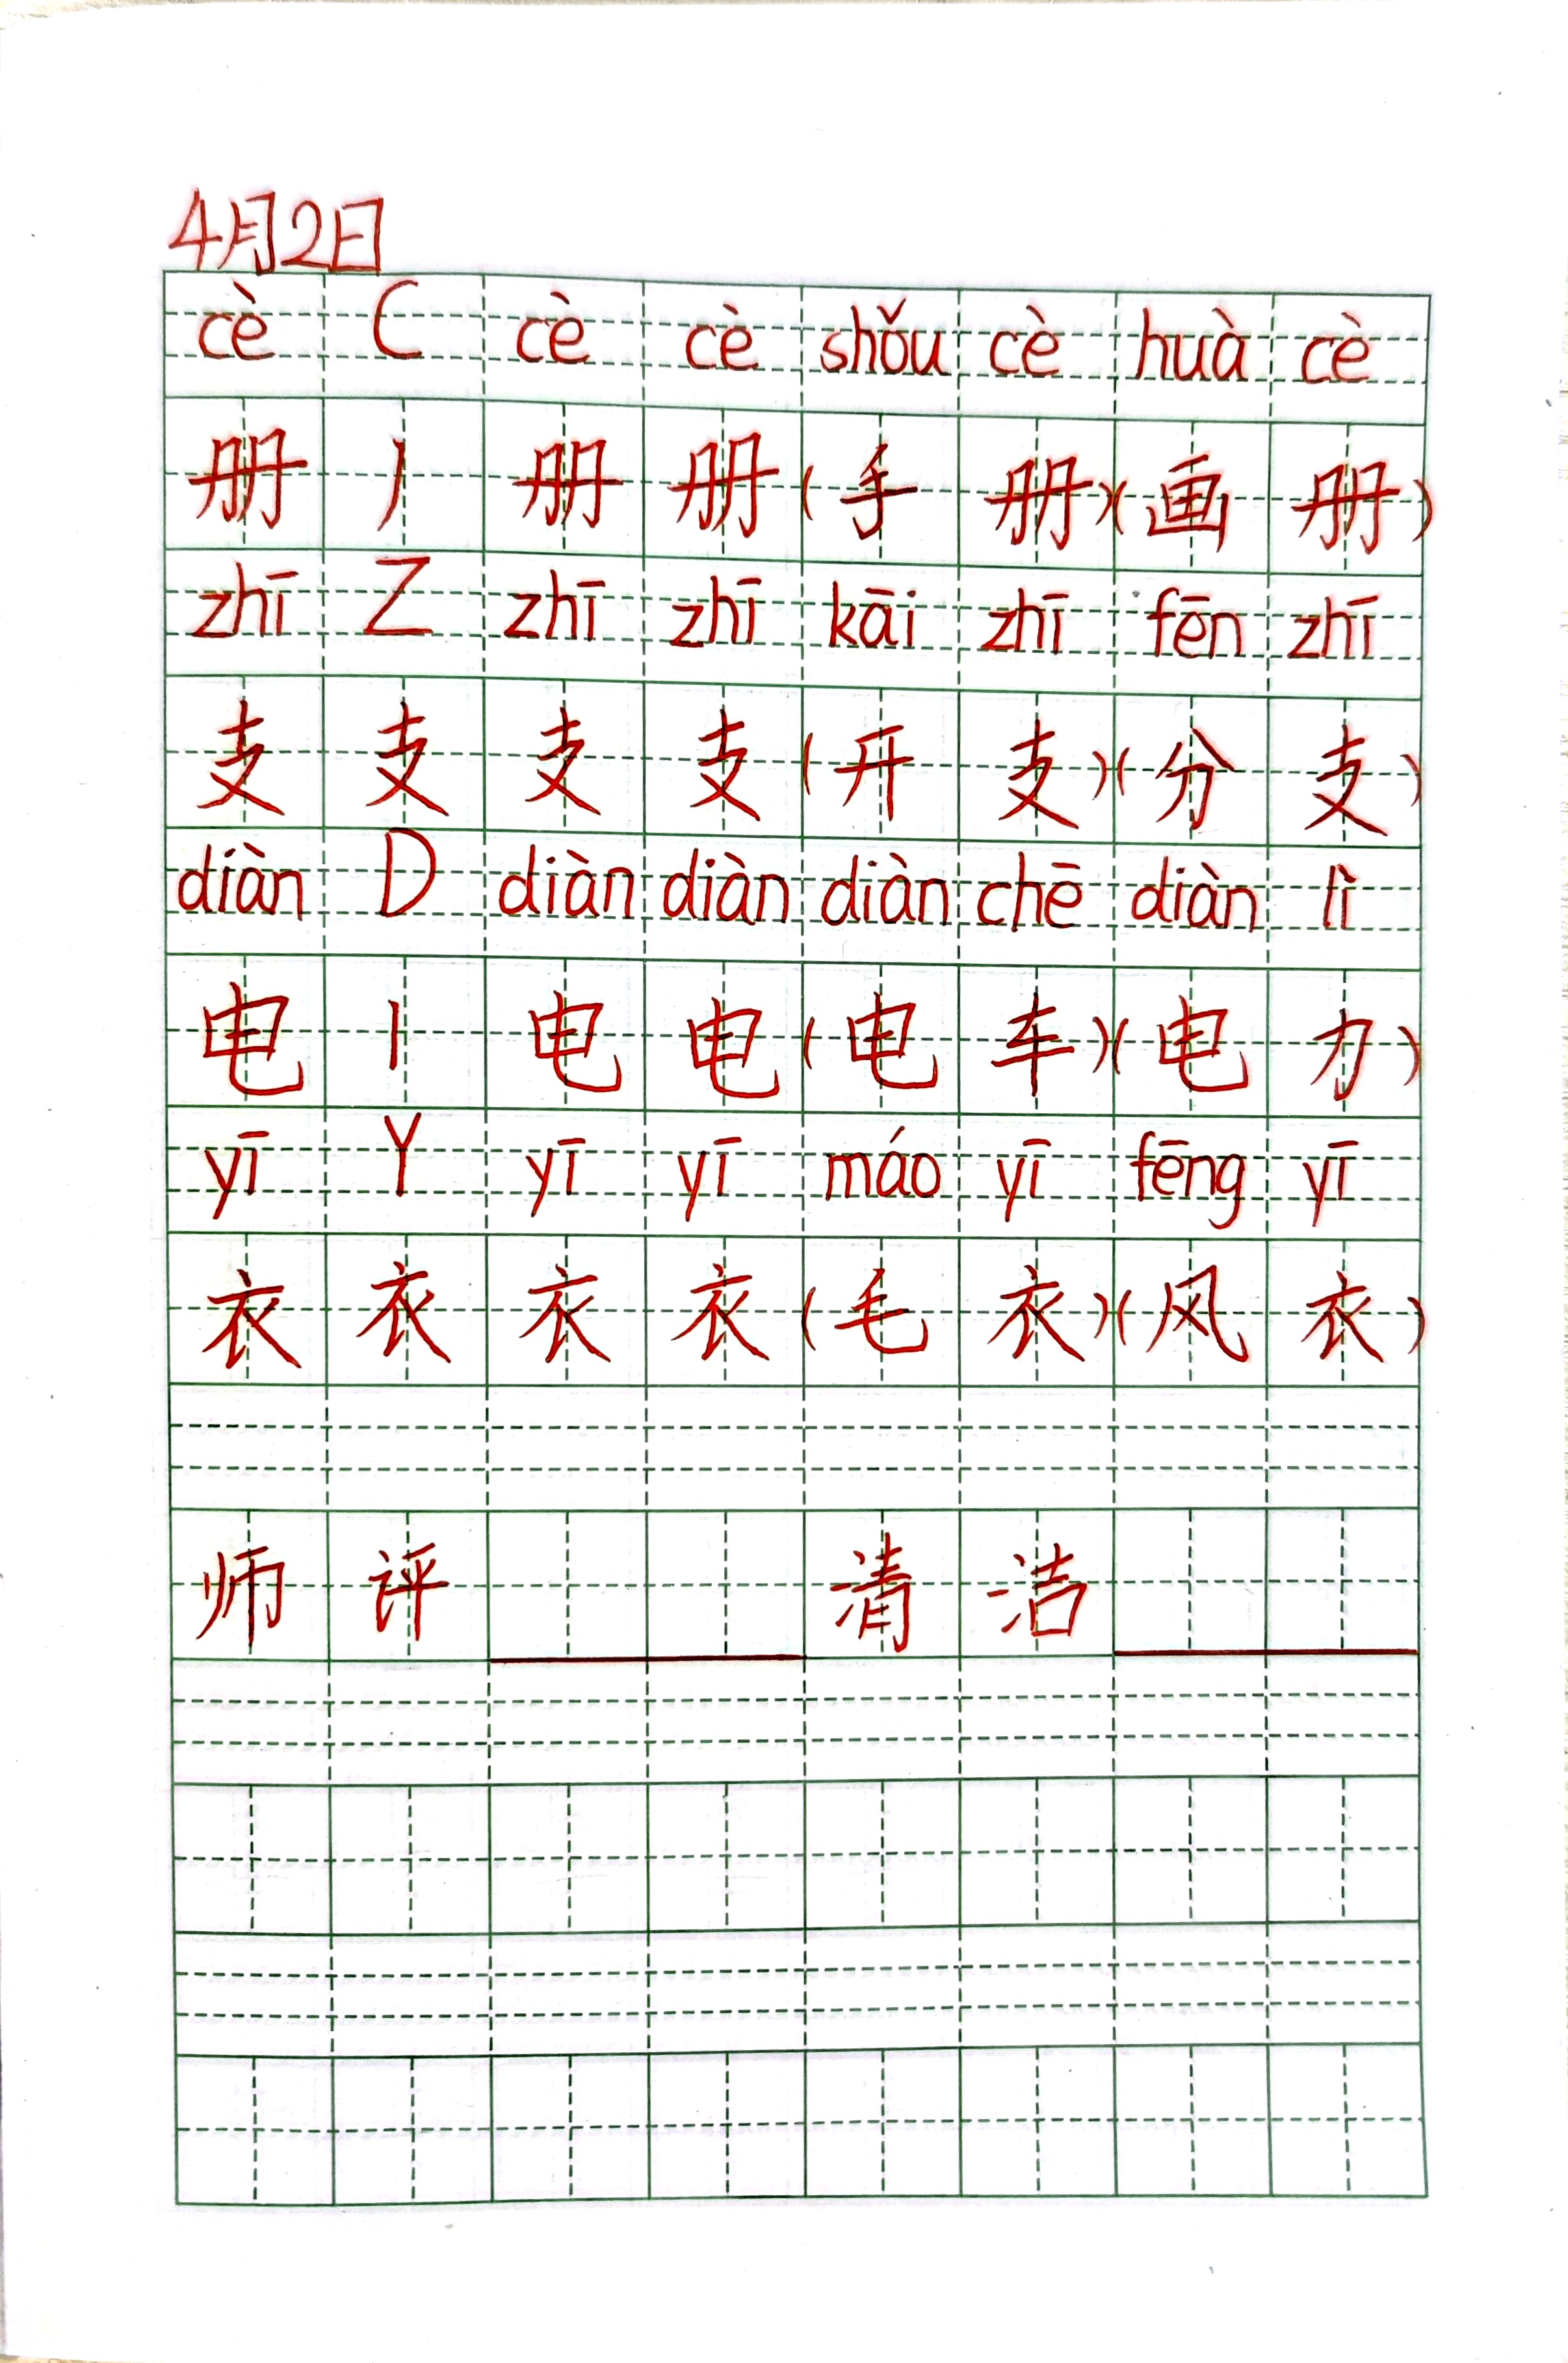 4月2日
cè C cè cè shǒu cè huà cè
册 丿 册 册 (手 册)(画 册)
zhī Z zhī zhī kāi zhī fēn zhī
支 支 支 支 (开 支)(分 支)
diàn D diàn diàn diàn chē diàn lì
电 丨 电 电 (电 车)(电 力)
yī Y yī yī máo yī fēng yī
衣 衣 衣 衣 (毛 衣)(风 衣)
师 评 清 洁